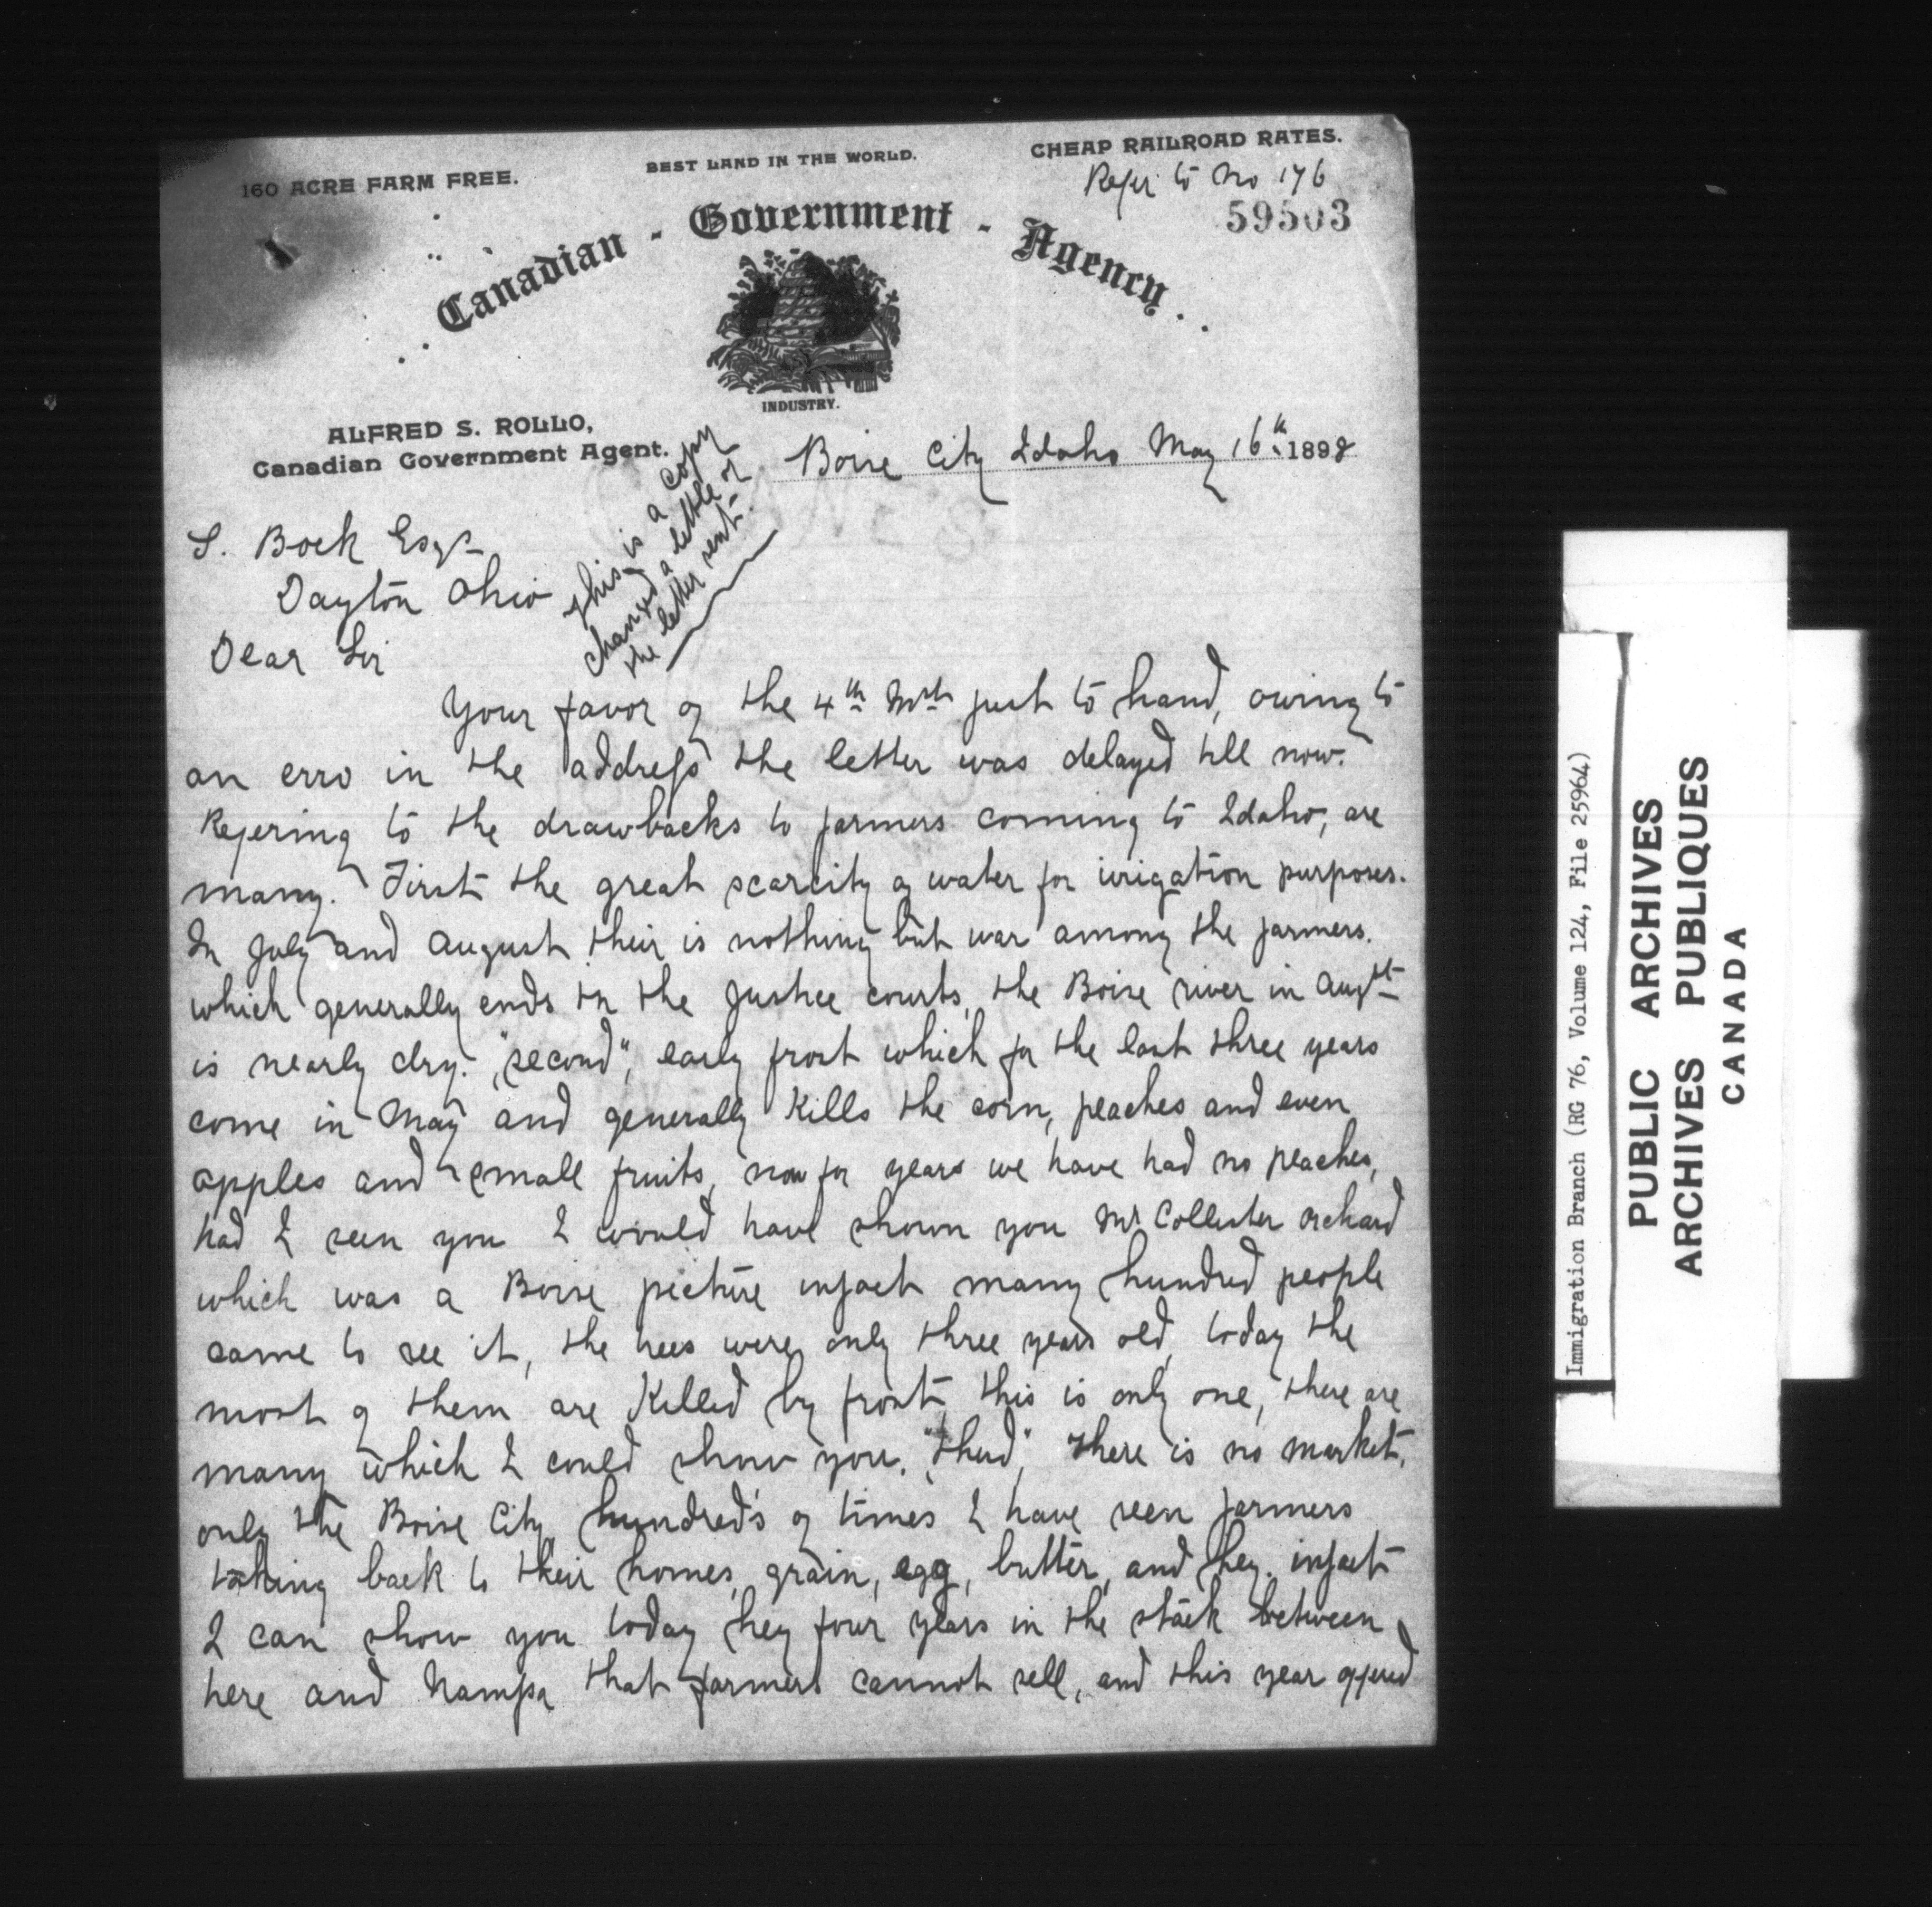 160 ACRE FARM FREE.
BEST LAND IN THE WORLD.
CHEAP RAILROAD RATES.
Refer to No 176
59503
Canadian - Government - Agency
INDUSTRY.
ALFRED S. ROLLO,
Canadian Government Agent.
Boise City Idaho May 16th 1898
This is a copy
changed a little of
the letter sent.
S. Bock Esqr
Dayton Ohio
Dear Sir
Your favor of the 4th Inst just to hand, owing to
an erro in the address the letter was delayed till now.
Refering to the drawbacks to farmers coming to Idaho, are
many. First the great scarcity of water for irrigation purposes.
In July and August their is nothing but war among the farmers.
which generally ends in the Justice courts, the Boise river in Augst
is nearly dry. "second", early frost which for the last three years
come in May and generally kills the corn, peaches and even
apples and small fruits, now for years we have had no peaches,
had I seen you I would have shown you Mr Collister orchard
which was a Boise picture infact many hundred people
came to see it, the trees were only three years old, today the
most of them are killed by frost, this is only one, there are
many which I could show you. "third", There is no market,
only the Boise City, hundred's of times I have seen farmers
taking back to their homes, grain, egg, butter, and hey. infact
I can show you today hey four years in the stack between
here and Nampa that farmers cannot sell, and this year offered
Immigration Branch (RG 76, Volume 124, File 25964)
PUBLIC ARCHIVES
ARCHIVES PUBLIQUES
CANADA